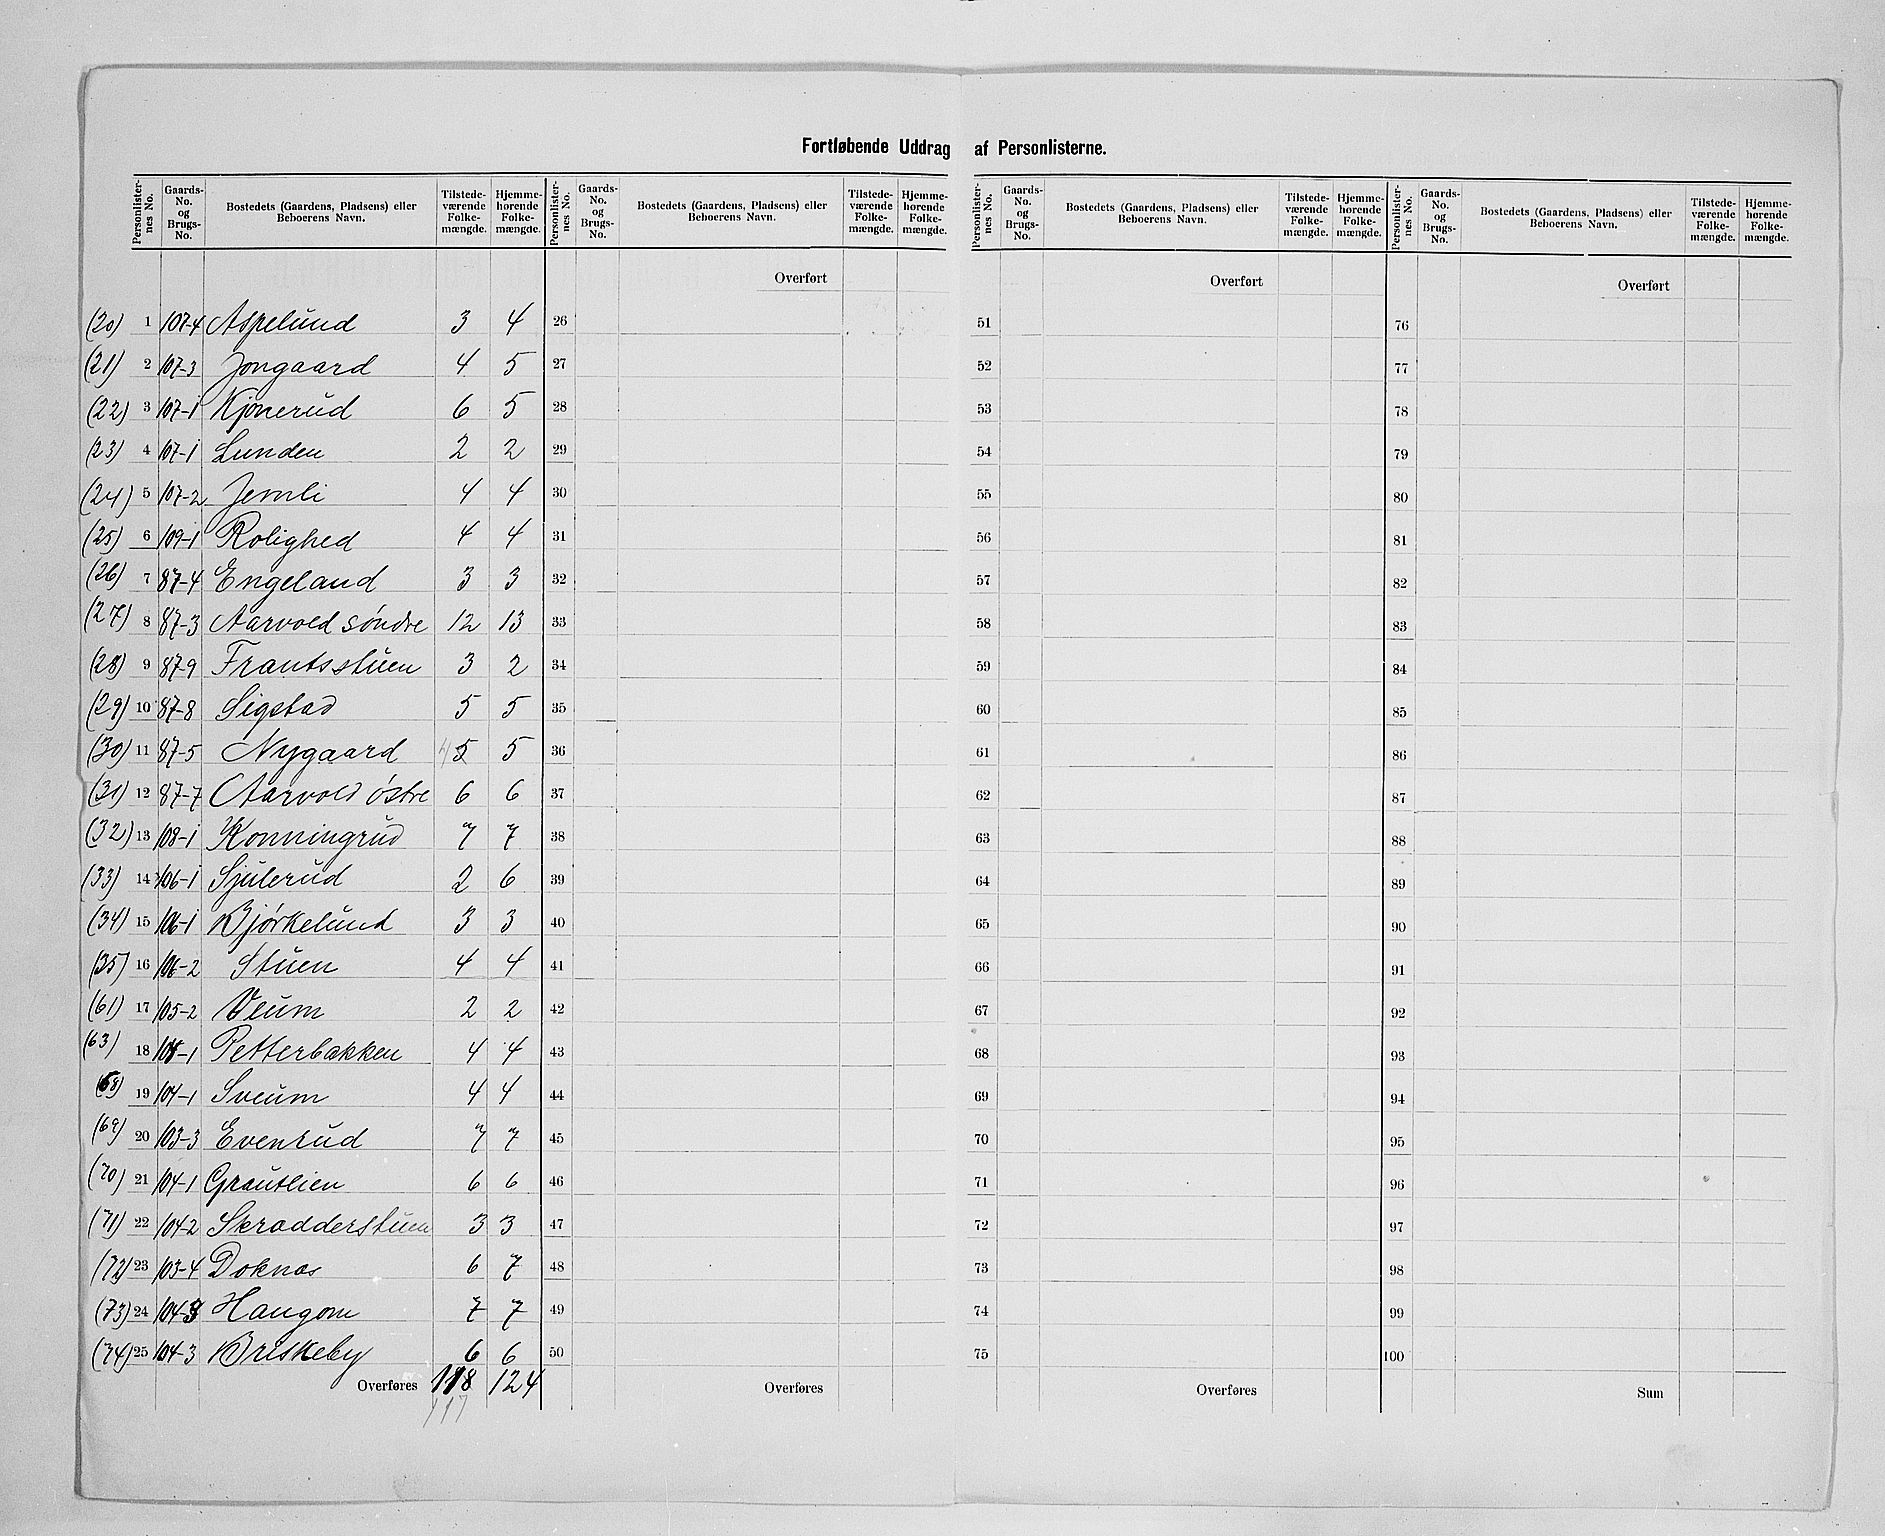 Fortløbende Uddrag af Personlisterne.
Personlister-nes No. | Gaards-No. og Brugs-No. | Bostedets (Gaardens, Pladsens) eller Beboerens Navn. | Tilstede-værende Folke-mængde. | Hjemme-hørende Folke-mængde.
(20) 1 107-4 Aspelund 3 4
(21) 2 107-3 Jongaard 4 5
(22) 3 107-1 Kjønerud 6 5
(23) 4 107-1 Lunden 2 2
(24) 5 107-2 Jemli 4 4
(25) 6 109-1 Rolighed 4 4
(26) 7 87-4 Engeland 3 3
(27) 8 87-3 Aarvold søndre 12 13
(28) 9 87-9 Frantsstuen 3 2
(29) 10 87-8 Sigstad 5 5
(30) 11 87-5 Nygaard 4 5 5
(31) 12 87-7 Aarvold østre 6 6
(32) 13 108-1 Konningrud 7 7
(33) 14 106-1 Sjulerud 2 6
(34) 15 106-1 Bjørkelund 3 3
(35) 16 106-2 Stuen 4 4
(61) 17 105-2 Veum 2 2
(63) 18 104-1 Petterbakken 4 4
(68) 19 104-1 Sveum 4 4
(69) 20 103-3 Evenrud 7 7
(70) 21 104-1 Grautlien 6 6
(71) 22 104-2 Skradderstuen 3 3
(72) 23 103-4 Doknas 6 7
(73) 24 104-3 Haugom 7 7
(74) 25 104-3 Briskeby 6 6
Overføres 118 124
117
Personlister-nes No. | Gaards-No. og Brugs-No. | Bostedets (Gaardens, Pladsens) eller Beboerens Navn. | Tilstede-værende Folke-mængde. | Hjemme-hørende Folke-mængde.
Overført
26
27
28
29
30
31
32
33
34
35
36
37
38
39
40
41
42
43
44
45
46
47
48
49
50
Overføres
Personlister-nes No. | Gaards-No. og Brugs-No. | Bostedets (Gaardens, Pladsens) eller Beboerens Navn. | Tilstede-værende Folke-mængde. | Hjemme-hørende Folke-mængde.
Overført
51
52
53
54
55
56
57
58
59
60
61
62
63
64
65
66
67
68
69
70
71
72
73
74
75
Overføres
Personlister-nes No. | Gaards-No. og Brugs-No. | Bostedets (Gaardens, Pladsens) eller Beboerens Navn. | Tilstede-værende Folke-mængde. | Hjemme-hørende Folke-mængde.
Overført
76
77
78
79
80
81
82
83
84
85
86
87
88
89
90
91
92
93
94
95
96
97
98
99
100
Sum